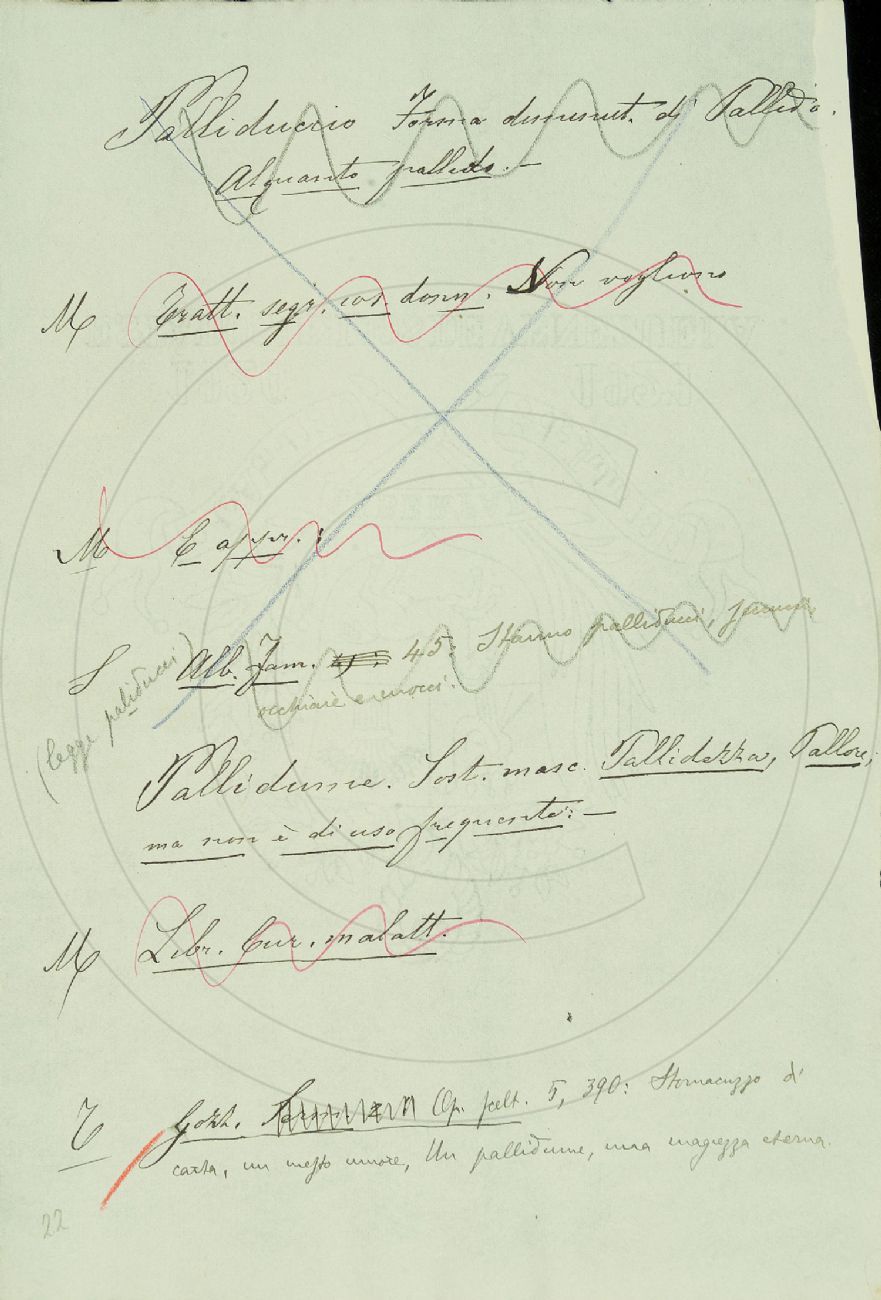 Palliduccio Forma diminut. di Pallido.
Alquanto pallido. —
M Tratt. segr. cos. donn. Non vogliono
M E appr.:
S Alb. Fam. 45. Stanno palliducci,
occhiaie e
(legge paliducci)
Pallidume. Sost. masc. Pallidezza, Pallore;
ma non è di uso frequente: —
M Libr. Cur. malatt.
T Gozz. Op. scelt. 5, 390: Stomacuzzo di
carta, un mesto umore, Un pallidume, una magrezza eterna.
22